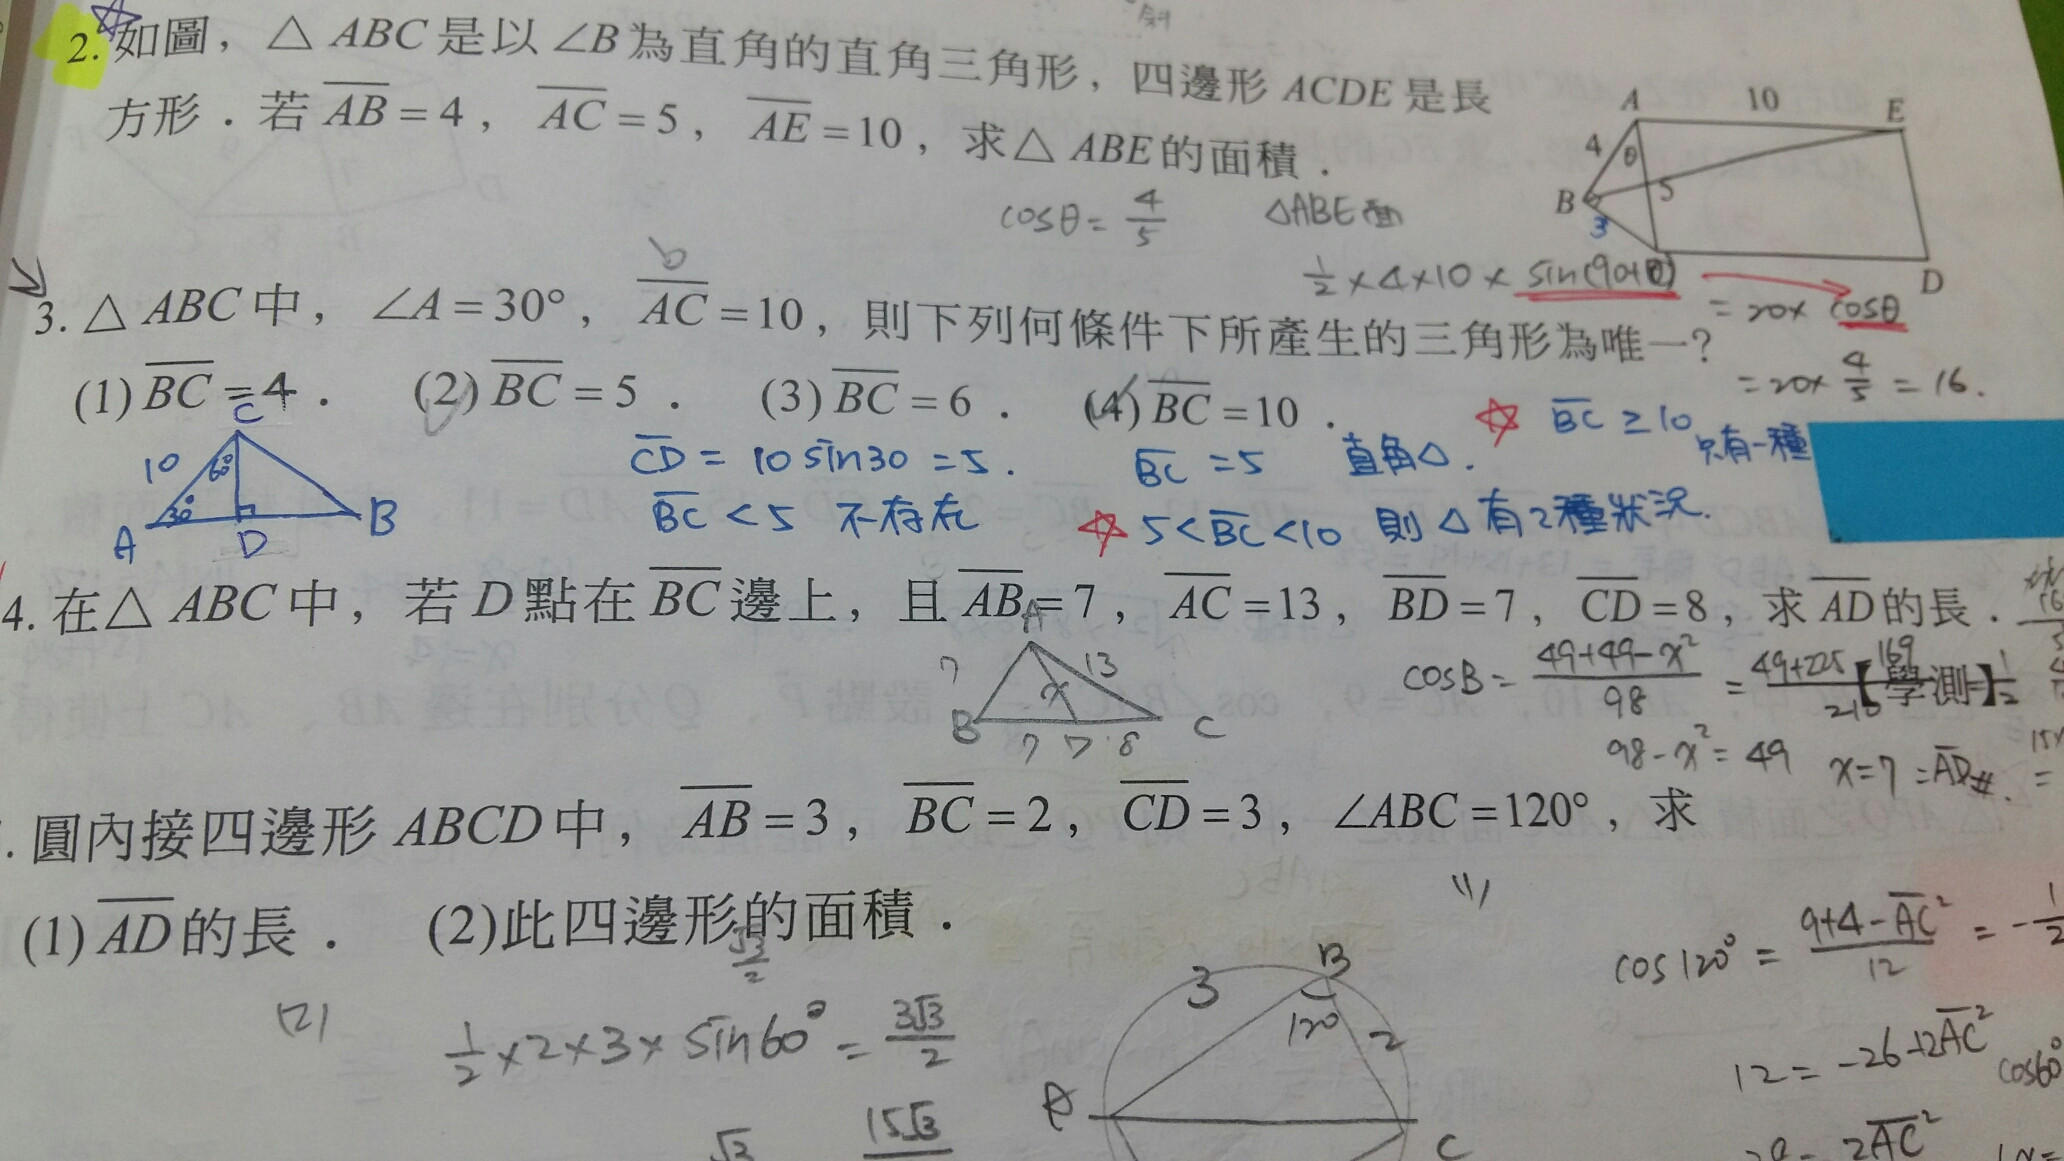 2. 如圖，△ ABC 是以 ∠B 為直角的直角三角形，四邊形 ACDE 是長
方形．若 AB = 4， AC = 5， AE = 10，求△ ABE 的面積．
A 10 E
4 θ
B 5
3
D
cosθ = 4/5 △ABE面
1/2 × 4 × 10 × sin(90+θ)
= 20× cosθ
= 20× 4/5 = 16.
b
3. △ ABC 中， ∠A = 30°， AC = 10，則下列何條件下所產生的三角形為唯一？
(1) BC = 4． (2) BC = 5． (3) BC = 6． (4) BC = 10．
C
10 60°
30°
A D B
CD = 10 sin30 = 5. BC = 5 直角△. ☆ BC ≥ 10 只有一種
BC < 5 不存在 ☆ 5 < BC < 10 則△有2種狀況.
4. 在△ ABC 中，若 D 點在 BC 邊上，且 AB = 7， AC = 13， BD = 7， CD = 8，求 AD 的長．
【學測】
A
7 x 13
B 7 D 8 C
cosB = (49+49-x²)/98 = (49+225-169)/210 = 1/2
98 - x² = 49 x = 7 = AD #.
. 圓內接四邊形 ABCD 中， AB = 3， BC = 2， CD = 3， ∠ABC = 120°，求
(1) AD 的長． (2)此四邊形的面積．
(1)
cos120° = (9+4-AC²)/12 = -1/2
cos60°
2AC²
(2)
√3/2
1/2 × 2 × 3 × sin60° = 3√3/2
√3 15√3
3 B
120 2
A C